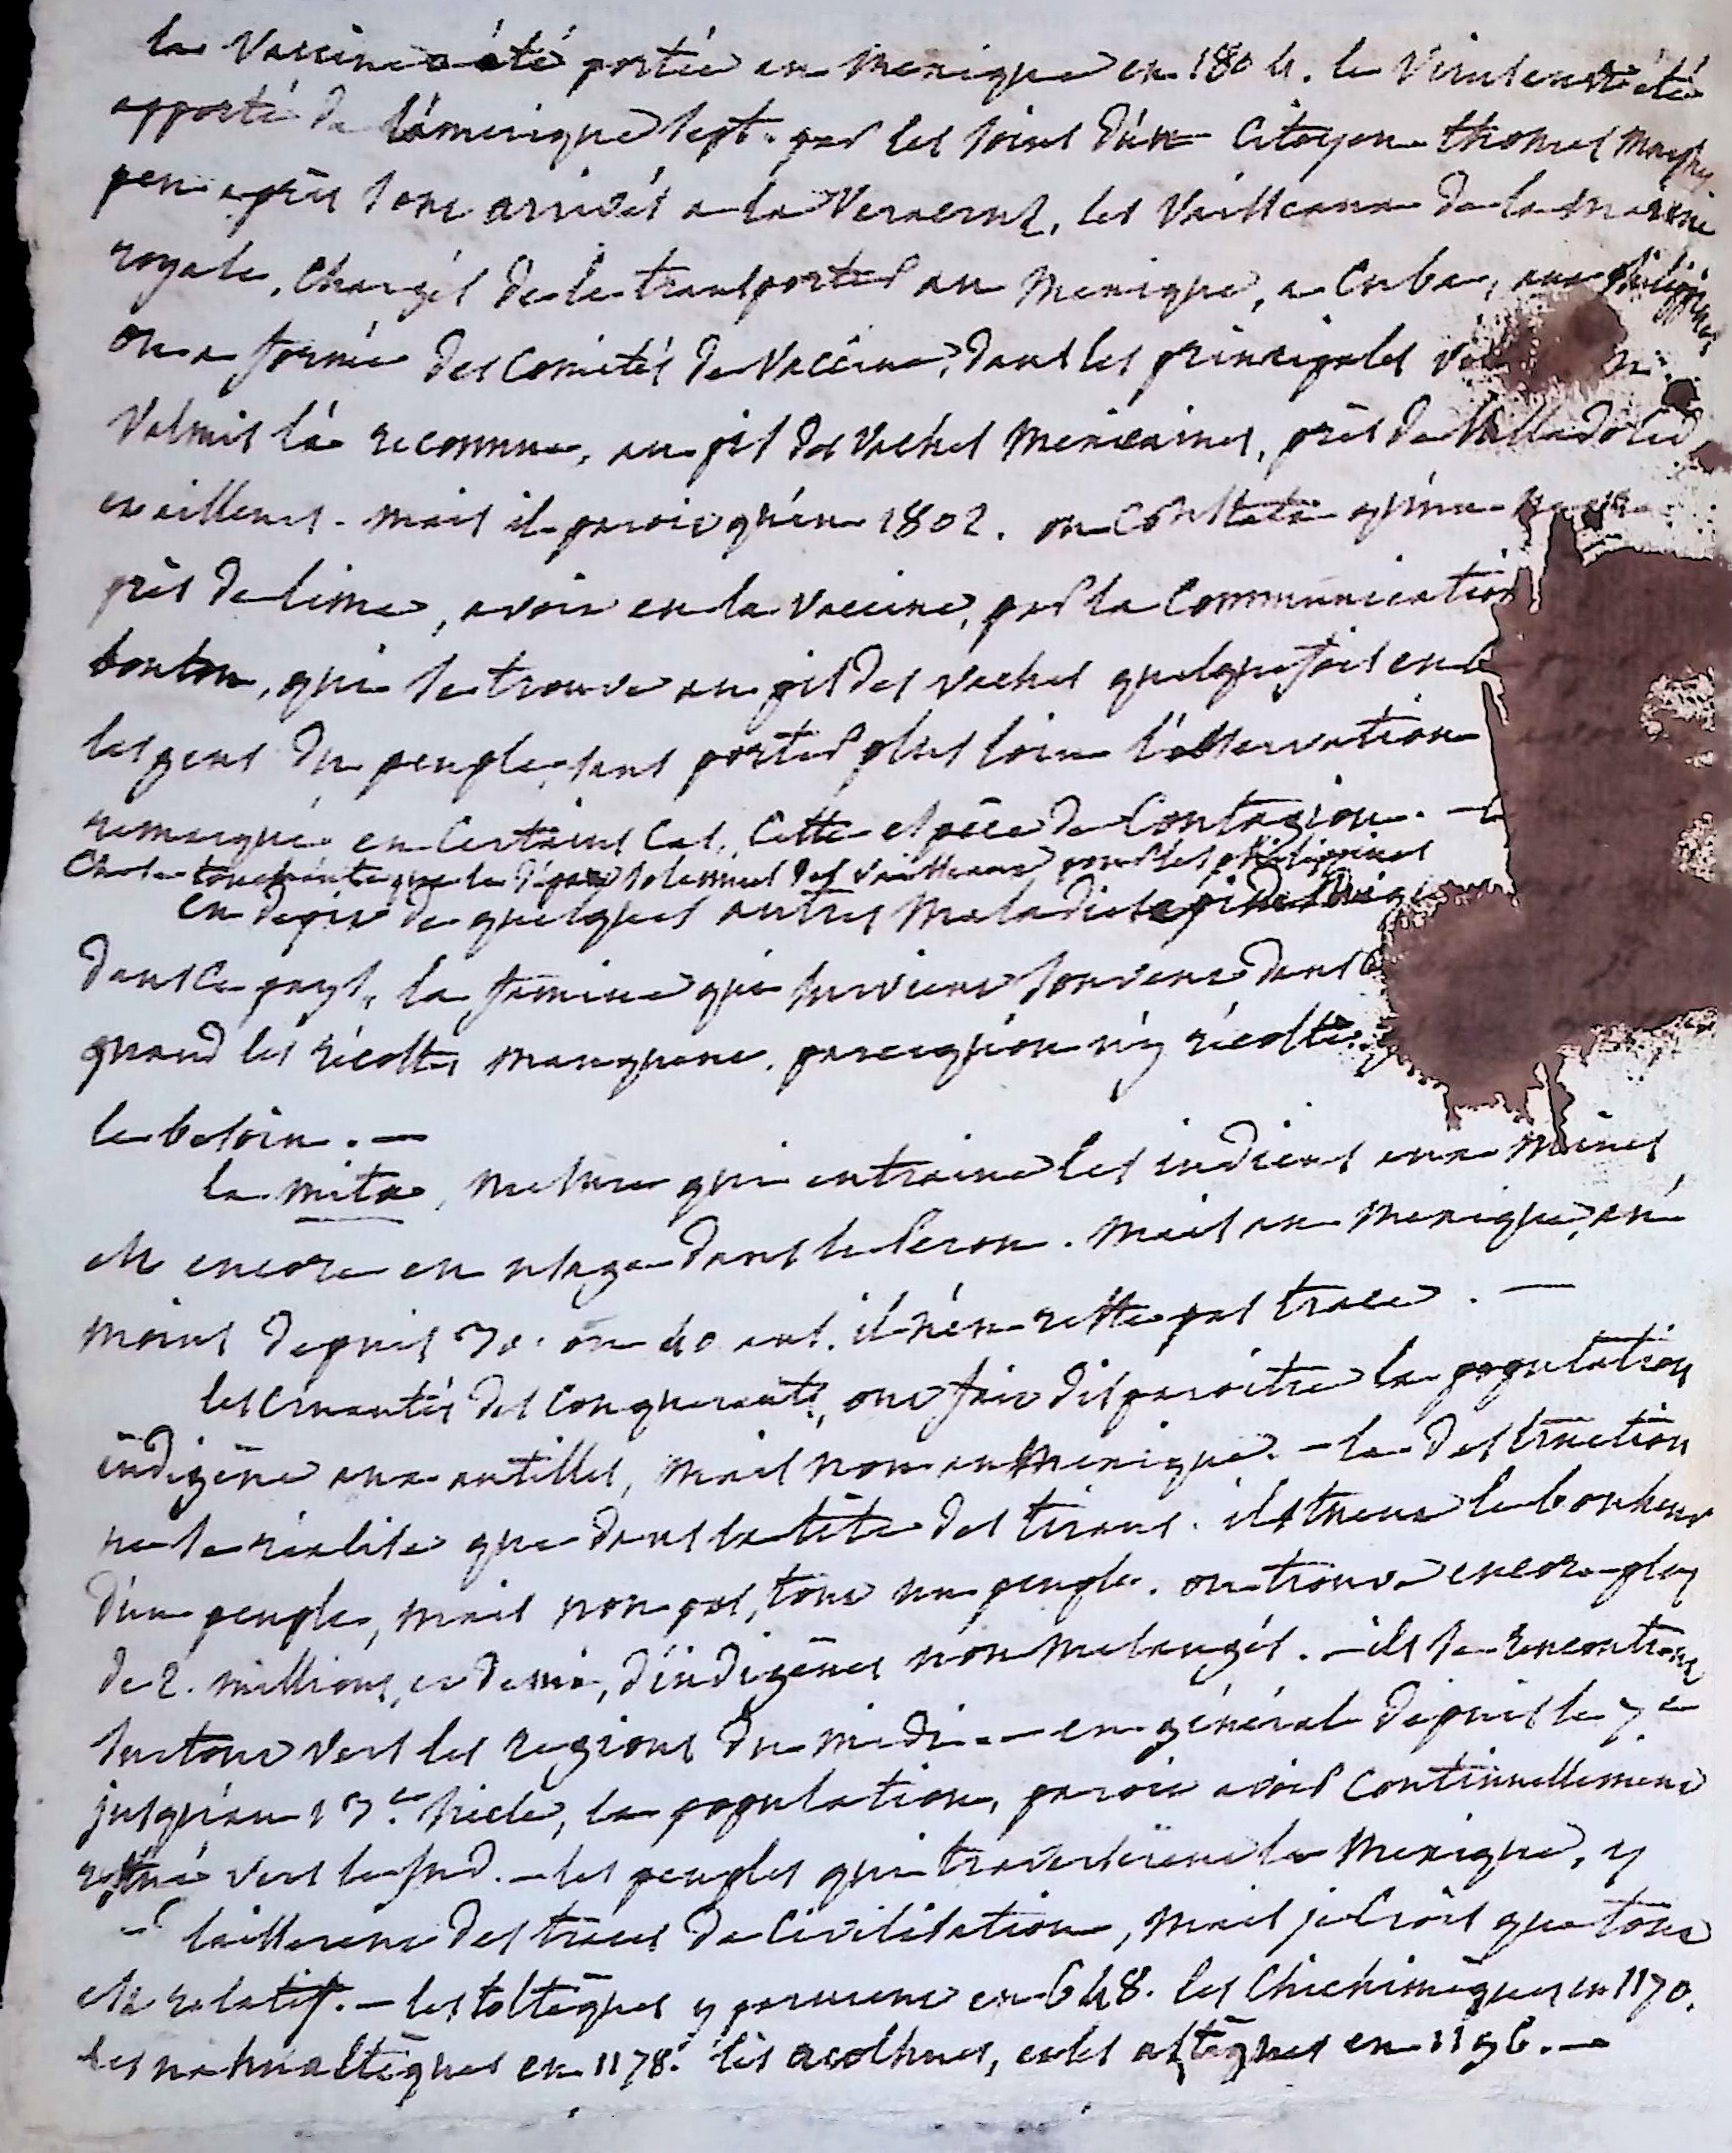 la vaccine a été portée au mexique en 1804. le virus en a été
apporté de l'amerique sept. par les soins d'un Citoyen thomas
peu après sont arrivés a la Veracruz, les vaisseaux de la marine
royale, chargés de le transporter au mexique, a Cuba, aux philippines
on a formé des comités de vaccine, dans les principales
l'a reconnue, au pis des vaches mexicaines, près de Valladolid
et ailleurs. mais il paroit qu'en 1802. on constata qu'un
près de lima, avoit eu la vaccine, par la communication
bouton, qui se trouve au pis des vaches quelquefois en
les gens du peuple, sans porter plus loin l'observation
remarqué en certains cas, cette espèce de contagion. -
touchante que le départ solennel des vaisseaux pour les philippines
en depit de quelques autres maladies
dans ce pays, la famine qui survient souvent dans
quand les récoltes manquent. parcequ'on n'y récolte
le besoin. —
la mita, mesure qui entraine les indiens aux mines
est encore en usage dans le Perou. mais au mexique, au
moins depuis 30. ou 40 ans. il n'en reste pas trace. —
les cruautés des conquerants, ont fait disparoitre la population
indigène aux antilles, mais non au mexique. - la destruction
ne se réalise que dans la tête des tirans. ils tuent le bonheur
d'un peuple, mais non pas, tout un peuple. on trouve encore plus
de 2. millions, et demi, d'indigènes non melangés. - ils se rencontrent
surtout vers les regions du midi. - en général depuis le 7e
jusqu'au 13e. siecle, la population, paroit avoir continuellement
reflué vers le sud. - les peuples qui traverserent le mexique, y
laisserent des traces de civilisation, mais je crois que tout
est relatif. - les toltèques y parurent en 648. les Chichimèques en 1170.
les nahualtèques en 1178. les acolhues, et les astèques en 1196. —